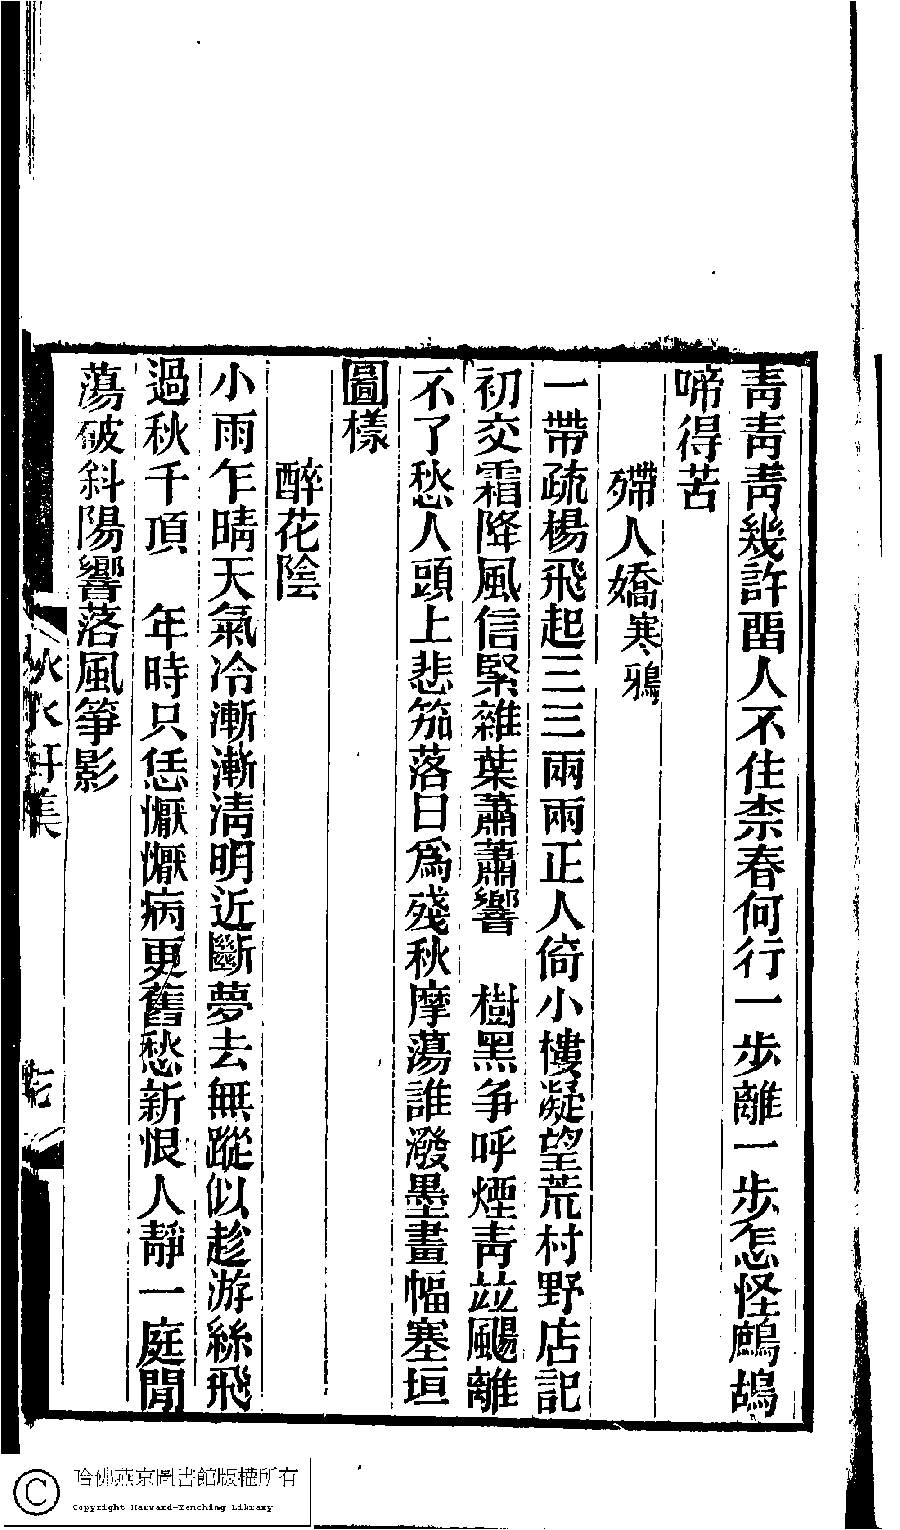 靑靑靑幾許畱人不住柰春何行一步離一步怎怪鷓鴣
啼得苦
殢人嬌寒鴉
一帶疏楊飛起三三兩兩正人倚小樓凝望荒村野店記
初交霜降風信緊雜葉蕭蕭響　樹黑爭呼煙靑竝颺離
不了愁人頭上悲笳落日爲殘秋摩蕩誰潑墨畫幅塞垣
圖樣
醉花陰
小雨乍晴天氣冷漸漸淸明近斷夢去無蹤似趁游絲飛
過秋千頂　年時只恁懨懨病更舊愁新恨人靜一庭閒
蕩破斜陽響落風箏影
秋水軒集
哈佛燕京圖書館版權所有
Copyright Harvard-Yenching Library